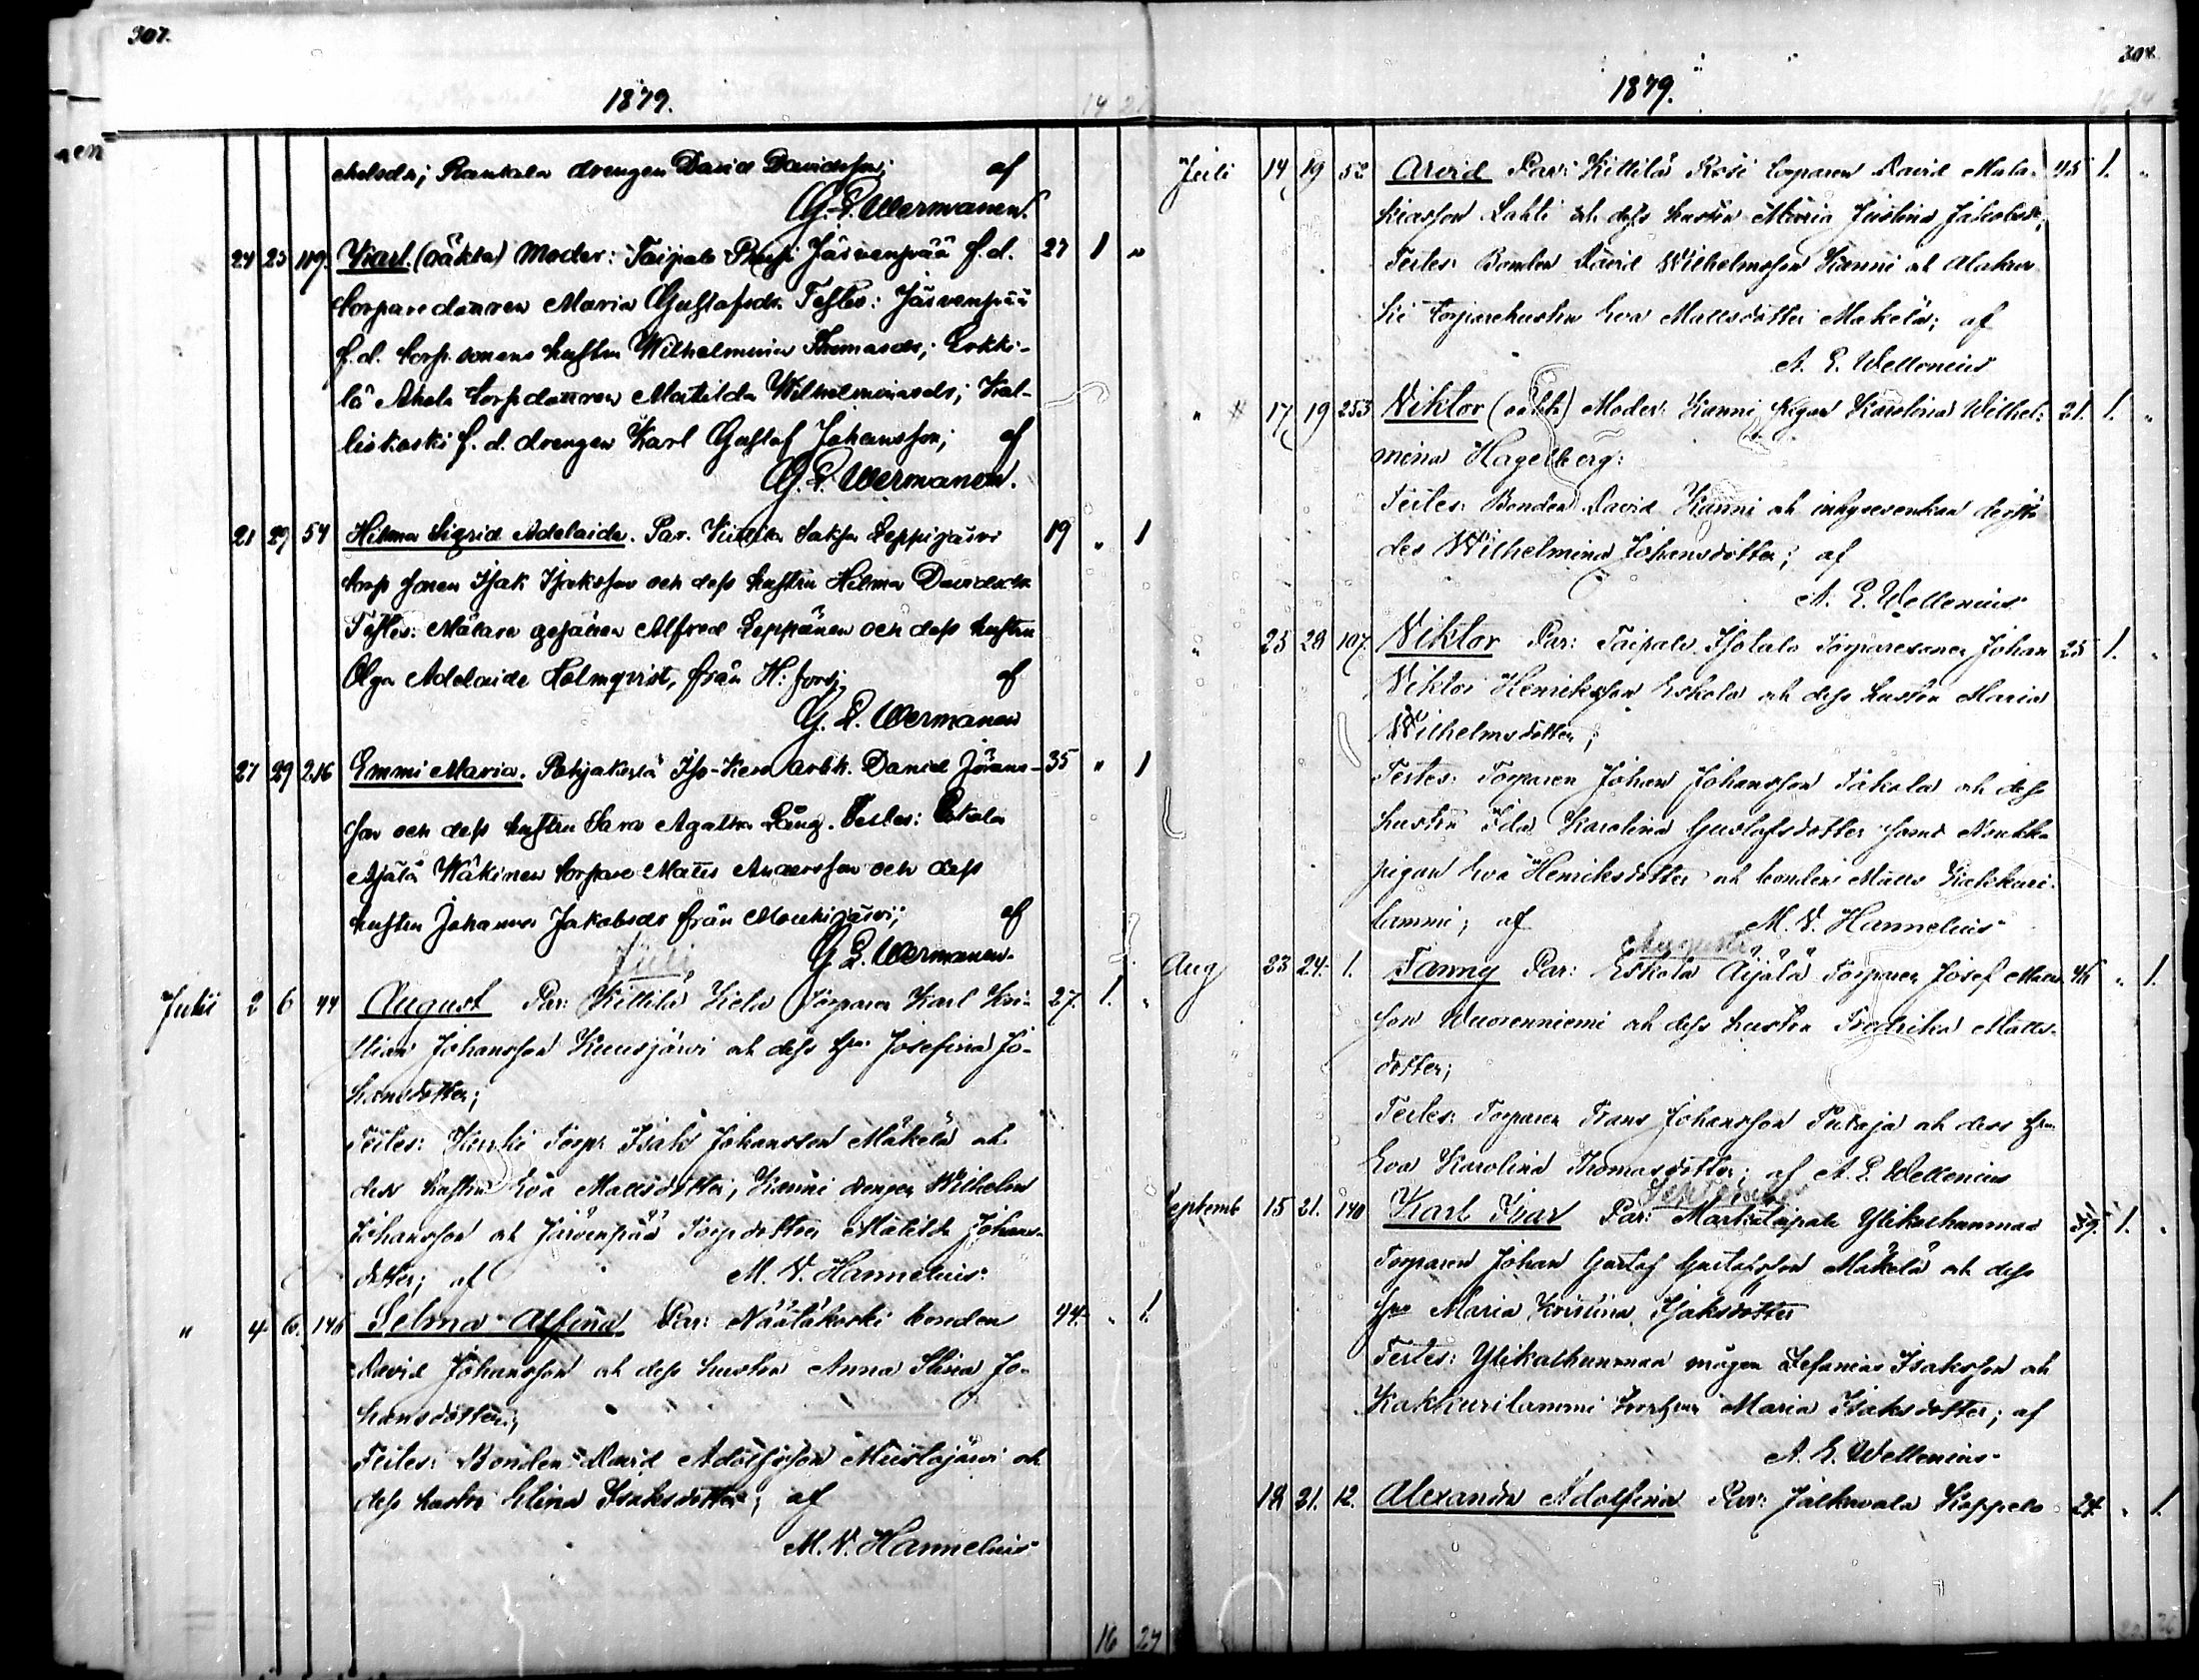 307.
1879.
drengen David Davidsson; af
G. E. Wermanen.
24 25 119. Karl. (oäkta) Moder: Taipale Järvenpää f.d. 27 1 "
torparedottren Maria Gustafsdr. Testes: Järvenpää
f.d. torp. sonens hustru Wilhelmina Thomasdr; Erkki-
lä torpdottren Matilda Kal-
liokoski f.d. drengen Karl Gustaf Johansson; af
G. E. Wermanen.
21 29 54 Hilma Sigrid Adelaide. Par. Leppijärvi 19 " 1
torp sonen Isak Isaksson och dess hustru Hilma Davidsdr
Testes: Målare gesällen Alfred Leppänen och dess hustru
Olga Adelaide Holmqvist, från H:fors; af
G. E. Wermanen
27 29 216 Emmi Maria. Pohjakylä Iso-Kero arbk. David 35 " 1
son och dess hustru Sara Agatha Lång. Testes: Eskola
Äijälä torpare Matts Andersson och dess
hustru Johanna Jakobsdr från af
Juli G. E. Wermanen.
Julii 2 6 44 August Par: Kittilä Torparen Karl Kri- 27. 1. "
stian Johansson Kuusjärvi och dess hru Josefina Jo-
hansdotter;
Testes: Torpr Isak Johansson Mäkelä och
dess hustru Eva Mattsdotter, Kanni drengen Wilhelm
Johansson och Järvenpää Torpdotter Matilda Johans-
dotter; af M. V. Hannelius.
" 4 6. 146 Selma Alfina Par: Näätäkoski bonden 44. " 1.
David Johansson och dess hustru Anna Stina Jo-
hansdotter;
Testes: Bonden David Adolfsson Mustajärvi och
dess hustru Elina Isaksdotter; af
M. V. Hannelius
16 24
308
1879.
Juli 14 19 52 Arvid Par: Kittilä torparen David Mala- 45 1. "
kiasson Lahti och dess hustru Maria Justina Jakobsdr;
Testes: Bonden David Wilhelmsson Kanni och Alakos-
ki torparehustru Eva Mattsdotter Mäkelä; af
A. E. Wellenius
" 17 19 253 Viktor (oäkta) Moder: Kanni pigan Karolina Wilhel- 21. 1. "
mina Hagelberg:
Testes: Bonden David Kanni och inhysesenkan
des Wilhelmina Johansdotter; af
A. E. Wellenius
" 25 28 107. Viktor Par: Taipale Isotalo Torparesonen Johan 25 1. "
Viktor Henriksson Eskola och dess hustru Maria
Wilhelmsdotter;
Testes: Torparen Johan Johansson och dess
hustru Ida Karolina Gustafsdotter samt
pigan Eva Henriksdotter och bonden Matts
lammi; af M. V. Hannelius
Augusti
Aug 23 24. 1. Fanny Par: Eskola Äijälä Torparen Josef 46 " 1.
son Wuorenniemi och dess hustru Fredrika Matts-
dotter;
Testes: Torparen Frans Johansson och dess hru
Eva Karolina Thomasdotter; af A. E. Wellenius
September
Septemb 15 21. 140 Karl Ivar Par: Martintaipale 39. 1. "
Torparen Johan Gustaf Gustafsson Mäkelä och dess
hru Maria Kristina Isaksdotter
Testes: mågen Isaksson och
Kakkurilammi Maria Isaksdotter; af
A. E. Wellenius
18 21. 12. Alexandra Adolfina Par: Jalkavala Koppelo 24. " 1.